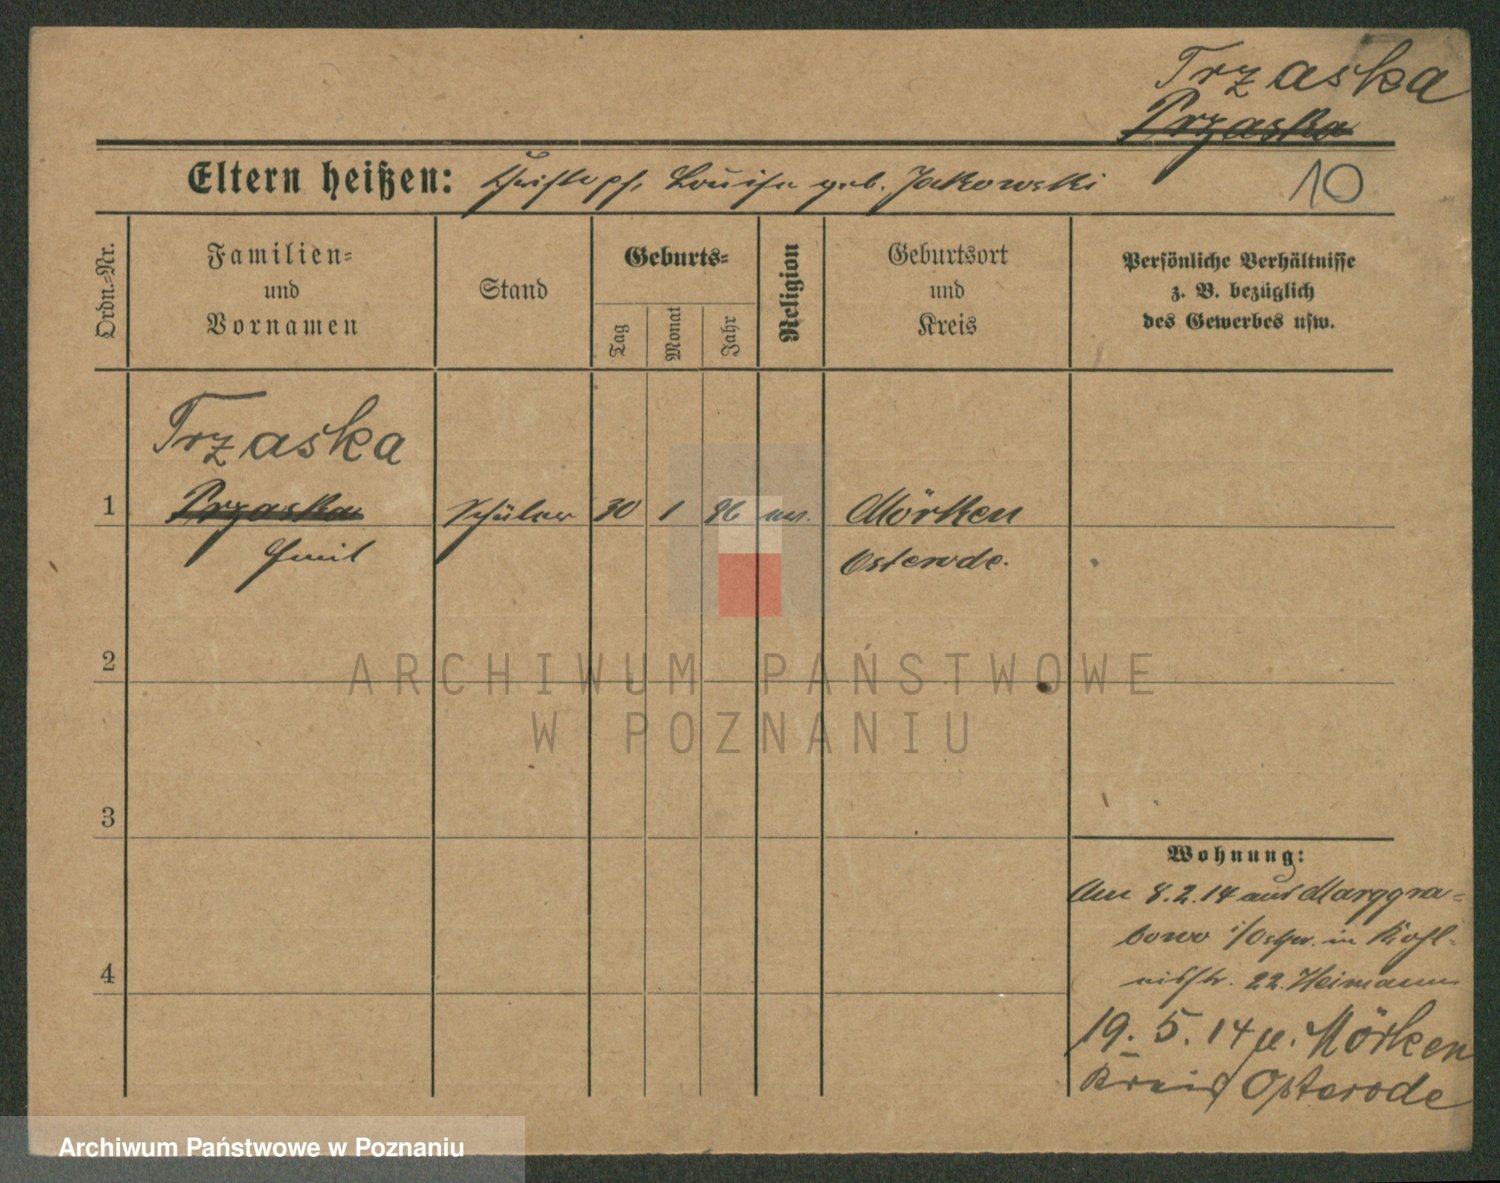 Trzaska
Przaska
Eltern heißen: Christoph, Louise geb. Jakowski
10
Ordn.-Nr.
Familien-
und
Vornamen
Stand
Geburts-
Tag
Monat
Jahr
Religion
Geburtsort
und
Kreis
Persönliche Verhältnisse
z. B. bezüglich
des Gewerbes usw.
Trzaska
1 Przaska Schüler 30 1 96 ev. Mörken
Emil Osterode.
2
3
4
Wohnung:
Am 8.2.14 aus Marggra-
bowo i/Ostpr. in Kohl-
22. Heimann
19. 5. 14 n. Mörken
Kreis Osterode
ARCHIWUM PAŃSTWOWE
W POZNANIU
Archiwum Państwowe w Poznaniu